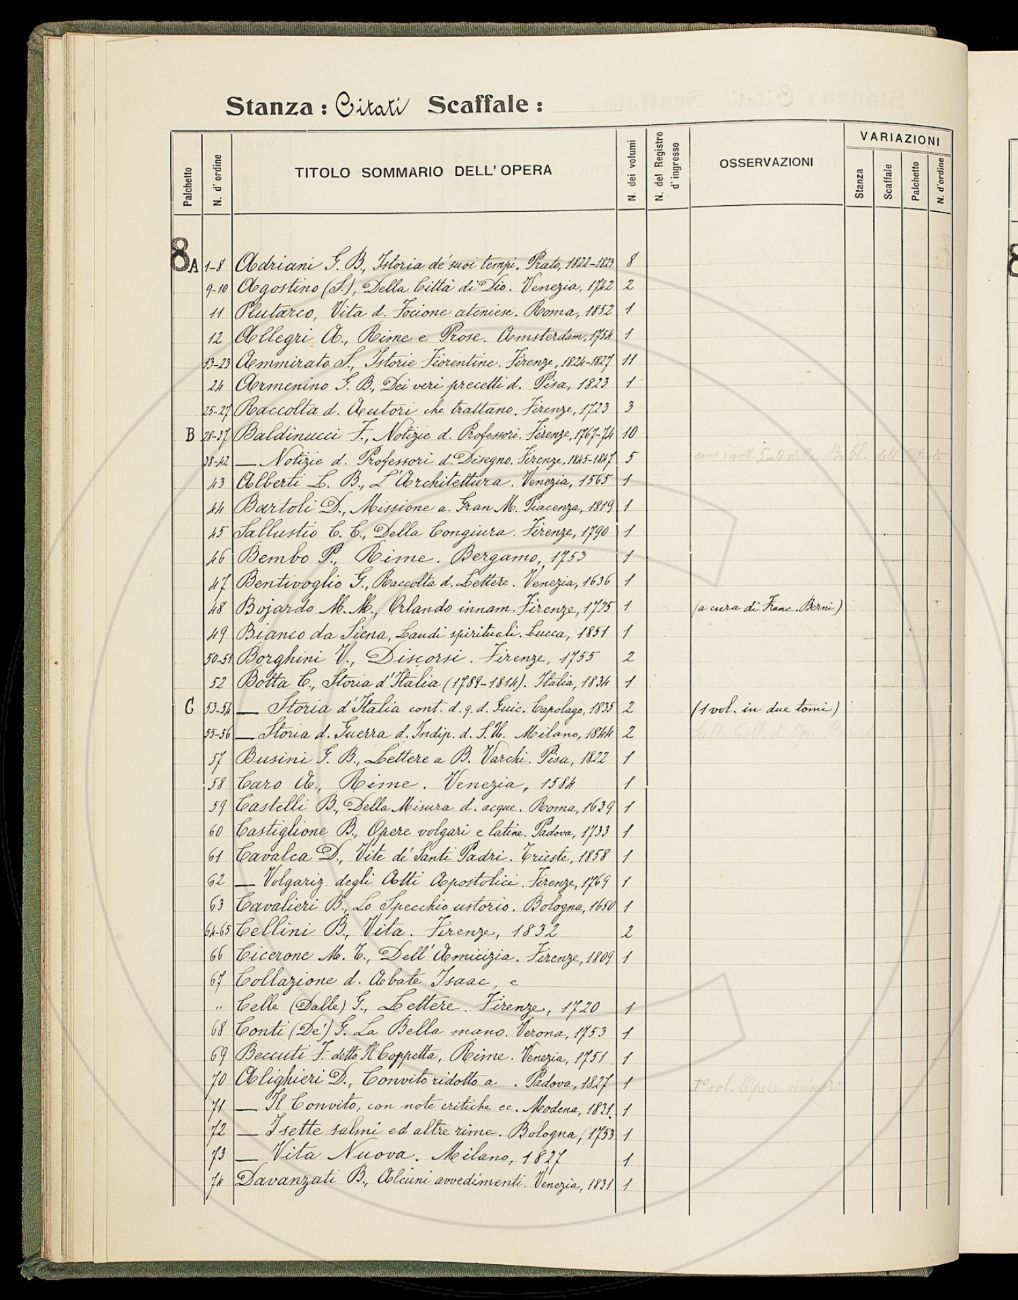 Stanza: Citati Scaffale:
Palchetto N. d'ordine TITOLO SOMMARIO DELL'OPERA N. dei volumi N. del Registro d'ingresso OSSERVAZIONI VARIAZIONI
Stanza Scaffale Palchetto N. d'ordine
8A 1-8 Adriani G. B., Istoria de' suoi tempi. Prato, 1822-1823 8
9-10 Agostino (S.), Della Città di Dio. Venezia, 1742 2
11 Plutarco, Vita d. Focione ateniese. Roma, 1852 1
12 Allegri A., Rime e Prose. Amsterdam, 1754 1
13-23 Ammirato S., Istorie Fiorentine. Firenze, 1824-1827 11
24 Armenino G. B., Dei veri precetti d. Pisa, 1823 1
25-27 Raccolta d. Autori che trattano. Firenze, 1723 3
B 28-37 Baldinucci F., Notizie d. Professori. Firenze, 1767-74 10
38-42 — Notizie d. Professori d. Disegno. Firenze, 1845-1847 5
43 Alberti L. B., L'Architettura. Venezia, 1565 1
44 Bartoli D., Missione a. Gran M. Piacenza, 1819 1
45 Sallustio C. C., Della Congiura. Firenze, 1790 1
46 Bembo P., Rime. Bergamo, 1753 1
47 Bentivoglio G., Raccolta d. Lettere. Venezia, 1636 1
48 Bojardo M. M., Orlando innam. Firenze, 1735 1 (a cura di Franc. Berni)
49 Bianco da Siena, Laudi spirituali. Lucca, 1851 1
50-51 Borghini V., Discorsi. Firenze, 1755 2
52 Botta C., Storia d'Italia (1789-1814). Italia, 1834 1
C 53-54 — Storia d'Italia cont. d. q. d. Guic. Capolago, 1835 2 (1 vol. in due tomi)
55-56 — Storia d. Guerra d. Indip. d. S. U. Milano, 1844 2
57 Busini G. B., Lettere a B. Varchi. Pisa, 1822 1
58 Caro A., Rime. Venezia, 1584 1
59 Castelli B., Della Misura d. acque. Roma, 1639 1
60 Castiglione B., Opere volgari e latine. Padova, 1733 1
61 Cavalca D., Vite de' Santi Padri. Trieste, 1858 1
62 — Volgariz. degli Atti Apostolici. Firenze, 1769 1
63 Cavalieri B., Lo Specchio ustorio. Bologna, 1650 1
64-65 Cellini B., Vita. Firenze, 1832 2
66 Cicerone M. T., Dell'Amicizia. Firenze, 1809 1
67 Collazione d. Abate Isaac, e
" Celle (Dalle) G., Lettere. Firenze, 1720 1
68 Conti (De') G. La Bella mano. Verona, 1753 1
69 Beccuti F. detto Il Coppetta, Rime. Venezia, 1751 1
70 Alighieri D., Convito ridotto a . Padova, 1827 1 1° vol. Opere minori
71 — Il Convito, con note critiche ec. Modena, 1831 1
72 — I sette salmi ed altre rime. Bologna, 1753 1
73 — Vita Nuova. Milano, 1827 1
74 Davanzati B., Alcuni avvedimenti. Venezia, 1831 1